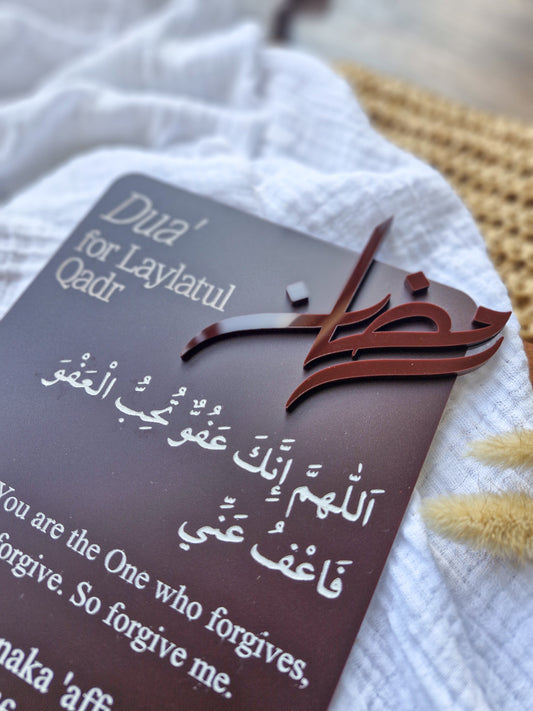 Dua'
for Laylatul
Qadr
رمضان
اَللّٰهمَّ إِنَّكَ عَفُوٌّ تُحِبُّ الْعَفْوَ
فَاعْفُ عَنِّي
You are the One who forgives,
forgive. So forgive me.
'aff